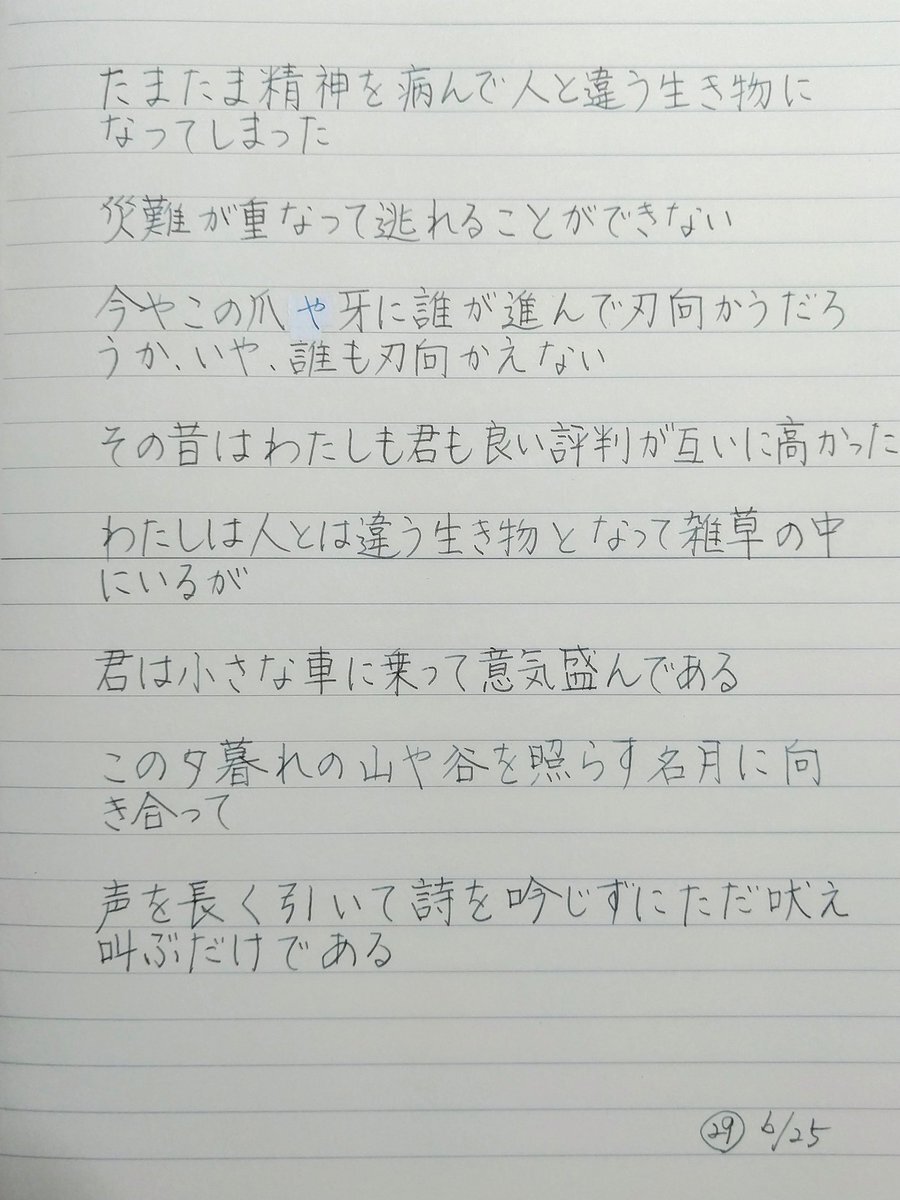 たまたま精神を病んで人と違う生き物に
なってしまった
災難が重なって逃れることができない
今やこの爪や牙に誰が進んで刃向かうだろ
うか、いや、誰も刃向かえない
その昔はわたしも君も良い評判が互いに高かった
わたしは人とは違う生き物となって雑草の中
にいるが
君は小さな車に乗って意気盛んである
この夕暮れの山や谷を照らす名月に向
き合って
声を長く引いて詩を吟じずにただ吠え
叫ぶだけである
㉙ 6/25